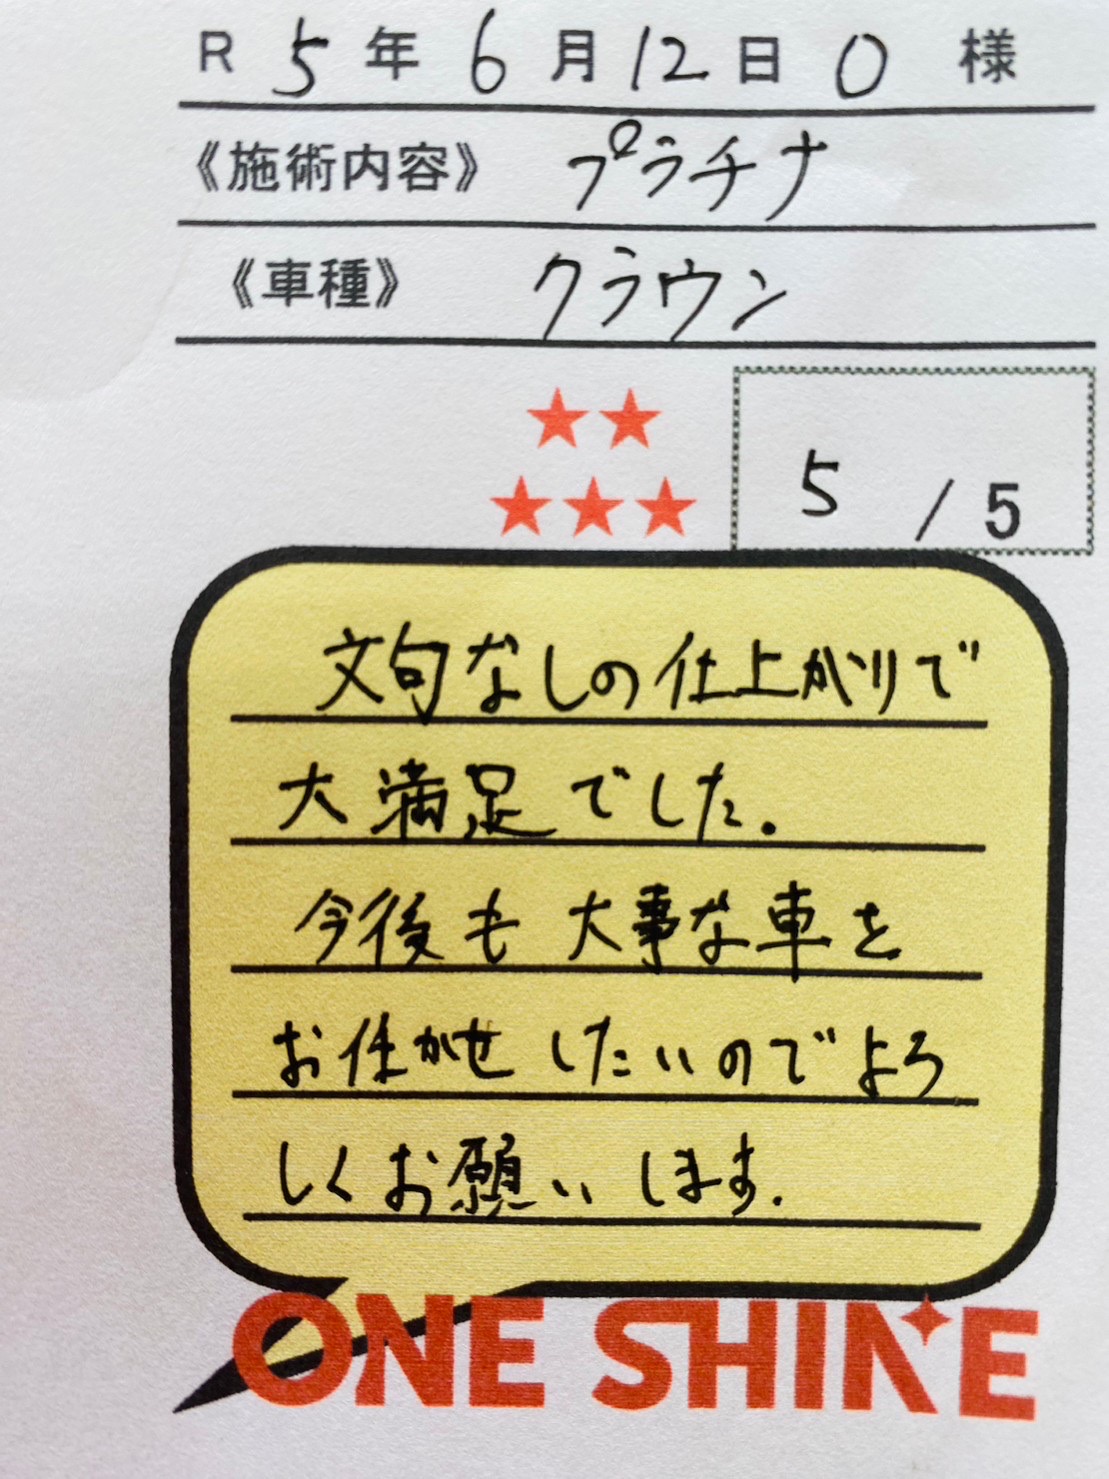 R 5年 6月12日 O 様
《施術内容》 プラチナ
《車種》 クラウン
★★
★★★
5 / 5
文句なしの仕上がりで
大満足でした。
今後も大事な車を
お任かせしたいのでよろ
しくお願いします.
ONE SHINE